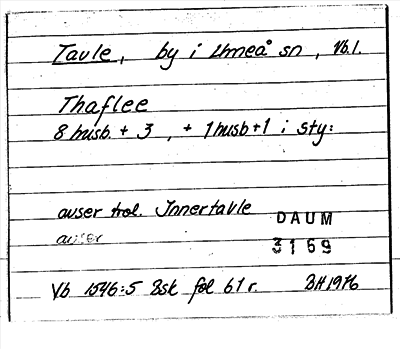 Tavle, by i Umeå sn, Vb.l.
Thaflee
8 husb. + 3, + 1 husb+1 i sty:
avser trol. Innertavle
DAUM
avser
3169
Vb 1546:5 Bsk fol 61r. BH1976